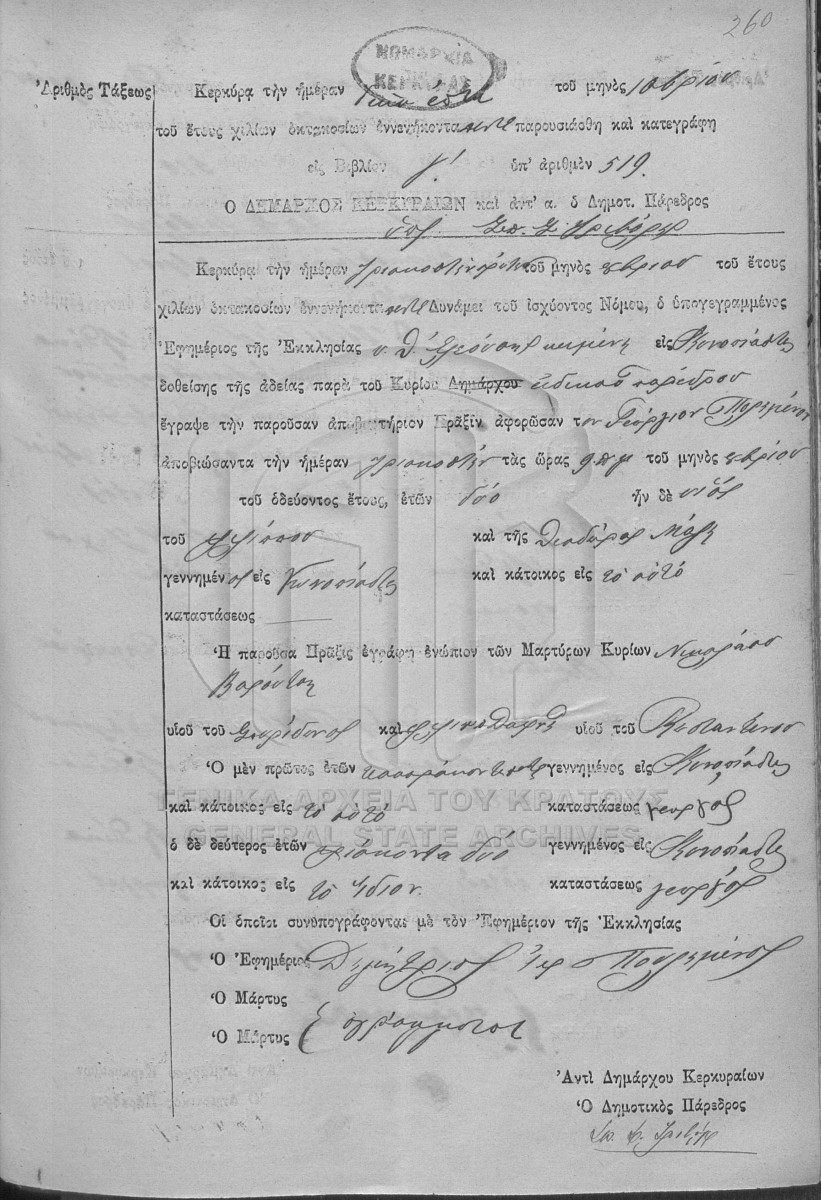 260
ΝΟΜΑΡΧΙΑ
ΚΕΡΚΥΡΑΣ
Ἀριθμὸς Τάξεως
Κερκύρᾳ τὴν ἡμέραν τοῦ μηνὸς 10βρίου
τοῦ ἔτους χιλίων ὀκτακοσίων ἐννενήκοντα πέντε παρουσιάσθη καὶ κατεγράφη
εἰς Βιβλίον γ'. ὑπ' ἀριθμὸν 519.
Ο ΔΗΜΑΡΧΟΣ ΚΕΡΚΥΡΑΙΩΝ καὶ ἀντ' α. ὁ Δημοτ. Πάρεδρος
Κερκύρᾳ τὴν ἡμέραν τριακοστὴν πρώτην τοῦ μηνὸς 8βρίου τοῦ ἔτους
χιλίων ὀκτακοσίων ἐννενήκοντα πέντε Δυνάμει τοῦ ἰσχύοντος Νόμου, ὁ ὑπογεγραμμένος
Ἐφημέριος τῆς Ἐκκλησίας υ. Θ. Ἐλεούσης κειμένης εἰς Κυνοπιάστας
δοθείσης τῆς ἀδείας παρὰ τοῦ Κυρίου Δημάρχου εἰδικοῦ παρέδρου
ἔγραψε τὴν παροῦσαν ἀποβιωτήριον Πρᾶξιν ἀφορῶσαν τον Γεώργιον Πουλημένον
ἀποβιώσαντα τὴν ἡμέραν τριακοστὴν τὰς ὥρας 9 π μ τοῦ μηνὸς 8βρίου
τοῦ ὁδεύοντος ἔτους, ἐτῶν δύο ἦν δὲ υἱὸς
τοῦ Φιλίππου καὶ τῆς Θεοδώρας
γεννημένος εἰς Κυνοπιάστας καὶ κάτοικος εἰς τὸ αὐτό
καταστάσεως
Ἡ παροῦσα Πρᾶξις ἐγράφη ἐνώπιον τῶν Μαρτύρων Κυρίων Νικολάου
Βαρούτση
υἱοῦ τοῦ Σπυρίδωνος καὶ υἱοῦ τοῦ Κωσταντίνου
Ὁ μὲν πρῶτος ἐτῶν γεννημένος εἰς Κυνοπιάστας
καὶ κάτοικος εἰς τὸ αὐτό καταστάσεως γεωργὸς
ὁ δὲ δεύτερος ἐτῶν τριάκοντα δύο γεννημένος εἰς Κυνοπιάστας
καὶ κάτοικος εἰς τὸ ἴδιον. καταστάσεως γεωργὸς
Οἱ ὁποῖοι συνυπογράφονται μὲ τὸν Ἐφημέριον τῆς Ἐκκλησίας
Ὁ Ἐφημέριος Δημήτριος Ἱερ. Πουλημένος
Ὁ Μάρτυς
Ὁ Μάρτυς ἀγράμματοι
Ἀντὶ Δημάρχου Κερκυραίων
Ὁ Δημοτικὸς Πάρεδρος
ΓΕΝΙΚΑ ΑΡΧΕΙΑ ΤΟΥ ΚΡΑΤΟΥΣ
GENERAL STATE ARCHIVES